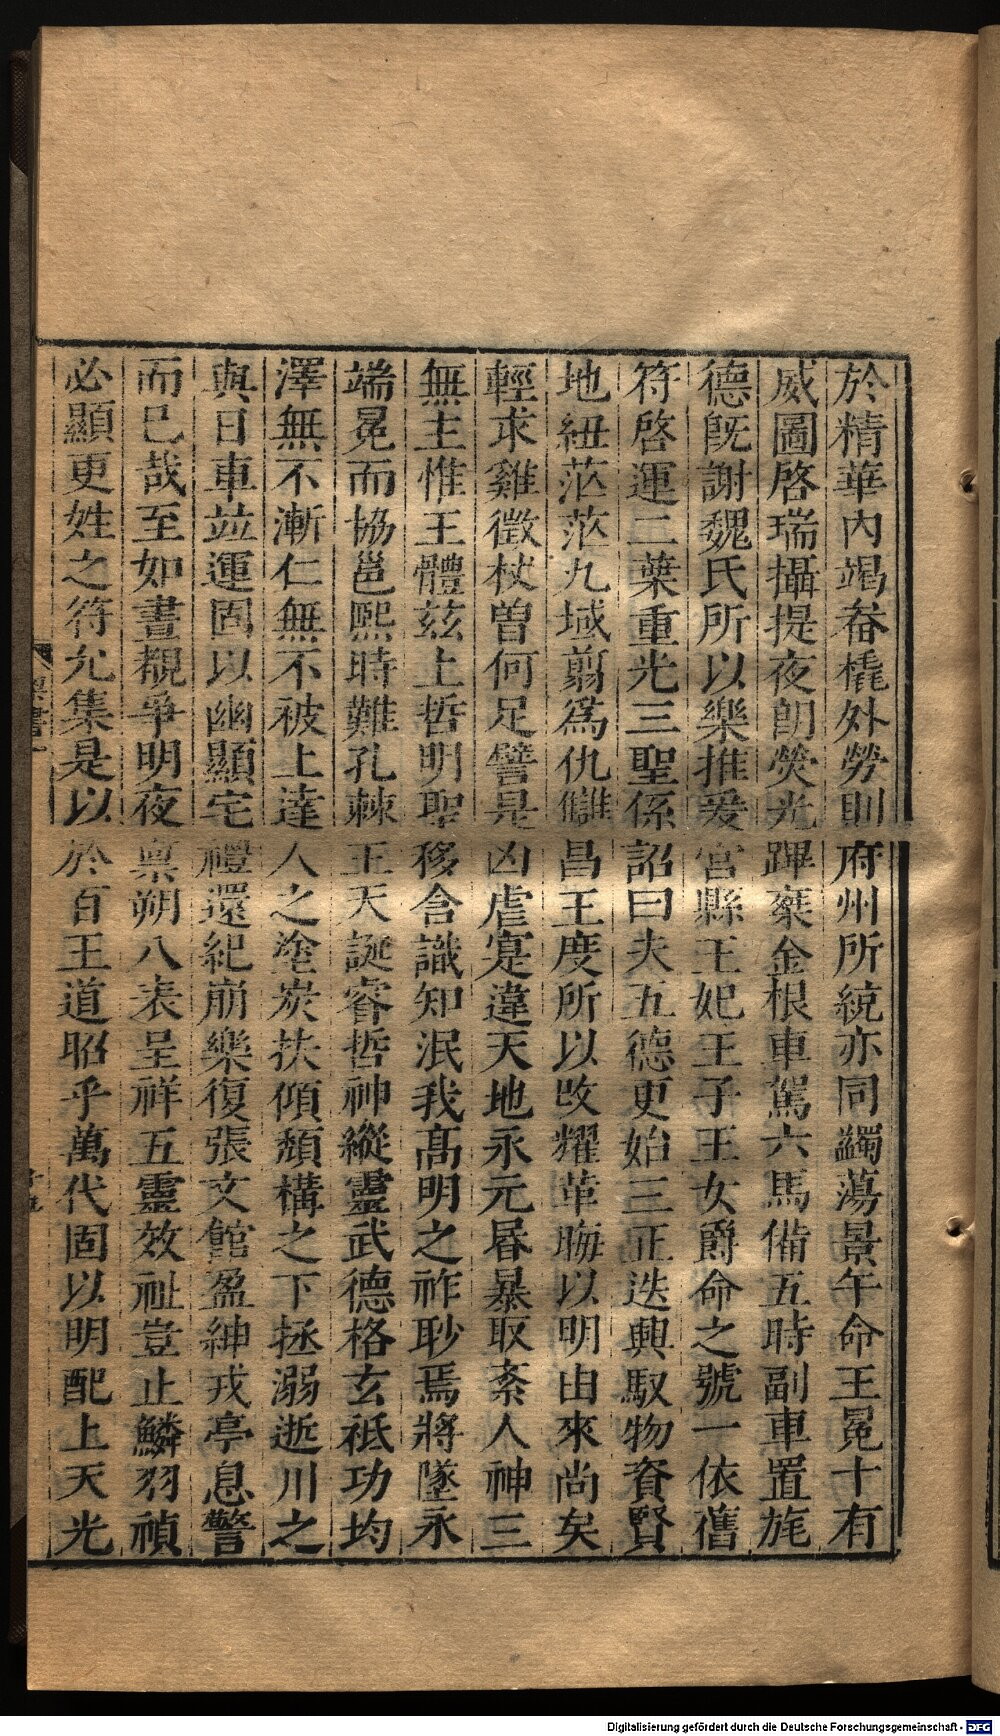 於精華內竭眷橇外勞則府州所統亦同蠲蕩景午命王冕十有
威圖啓瑞攝提夜朗熒光蹕乗金根車駕六馬備五時副車置旄
德旣謝魏氏所以樂推爰宮縣王妃王子王女爵命之號一依舊
符啓運二葉重光三聖係詔曰夫五德更始三正迭興馭物資賢
地紐茫茫九域翦爲仇讎昌王度所以改耀革晦以明由來尚矣
輕求雞徵杖曾何足譬是凶虐寔違天地永元昬暴取紊人神三
無主惟王體茲上哲明聖移含識知泯我髙明之祚眇焉將墜永
端冕而協邕熙時難孔棘王天誕睿哲神縱靈武德格玄祗功均
澤無不漸仁無不被上達人之塗炭扶傾頹構之下拯溺逝川之
與日車竝運固以幽顯宅禮還紀崩樂復張文館盈紳戎亭息警
而已哉至如晝覩爭明夜禀朔八表呈祥五靈效祉豈止鱗羽禎
必顯更姓之符允集是以於百王道昭乎萬代固以明配上天光
Digitalisierung gefördert durch die Deutsche Forschungsgemeinschaft - DFG